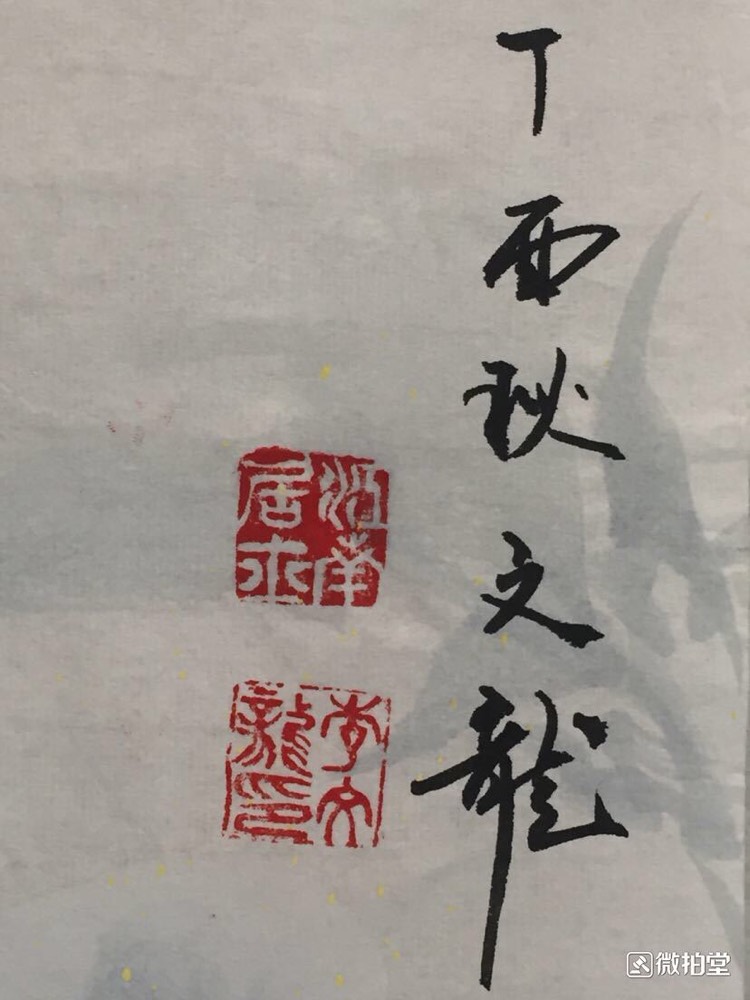 丁酉秋文龍
酒南
居士
李文
龍印
微拍堂